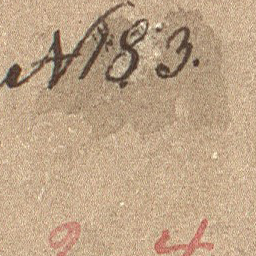 N 83.
2 4